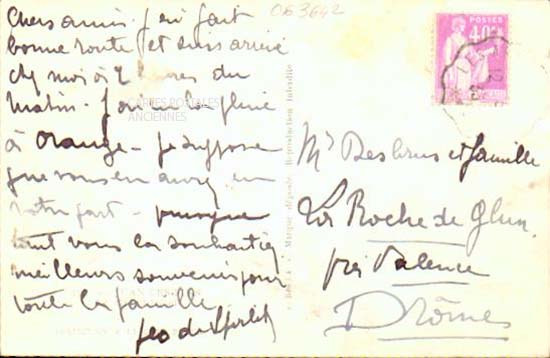 Chers amis. J'ai fait
bonne route et suis arrivé
chez moi à 7 heures du
matin. J'ai eu la pluie
à Orange. Je suppose
que vous en aurez eu
votre part. puisque
tant vous la souhaitiez
meilleurs souvenirs pour
toute la famille
063642
CARTES POSTALES
ANCIENNES
POSTES
40c
Marque déposée. Reproduction interdite
Mr Desbrus et famille
La Roche de Glun
près Valence
Drômes